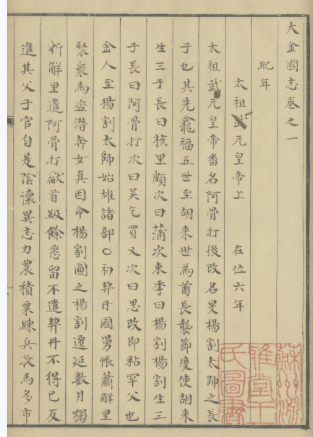 大金國志卷之一
紀年
太祖武元皇帝上 在位六年
太祖武元皇帝番名阿骨打後改名旻楊割太師之長
子也其先龕福五世至胡來世為酋長襲節度使胡來
生三子長曰核里頗次曰蒲次東季曰楊割楊割生三
子長曰阿骨打次曰吴乞買又次曰思改即粘罕父也
金人至楊割太師始雄諸部〇初契丹國舅帳蕭解里
聚衆為盜潛奔女真因命楊割圖之楊割遷延數月獨
斬解里遣阿骨打獻首級餘悉留不遣契丹不得已反
進其父子官自是陰懷異志力農積粟練兵牧馬多市